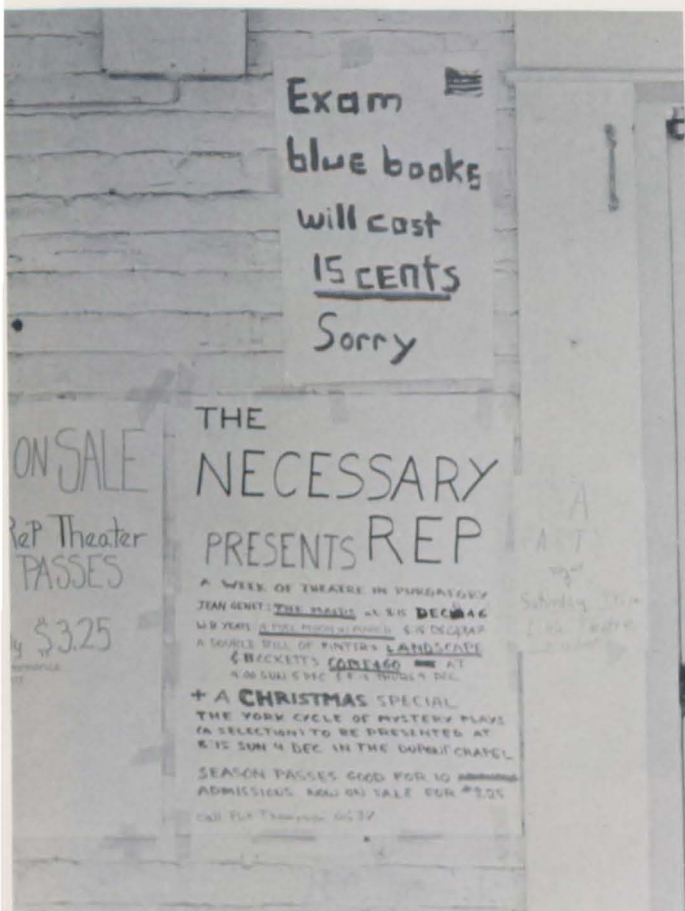 Exam
blue books
will cost
15 cents
Sorry
ON SALE
ReP Theater
PASSES
$3.25
THE
NECESSARY
PRESENTS REP
A WEEK OF THEATRE IN PURGATORY
JEAN GENET'S THE MAIDS at 8:15 DEC
A FULL MOON IN MARCH
A DOUBLE BILL OF PINTER'S LANDSCAPE
& BECKETT'S COME & GO AT
+ A CHRISTMAS SPECIAL
THE YORK CYCLE OF MYSTERY PLAYS
(A SELECTION) TO BE PRESENTED AT
8:15 SUN 4 DEC IN THE DUPONT CHAPEL
SEASON PASSES GOOD FOR 10
ADMISSIONS NOW ON SALE FOR
Call Thompson
A
Saturday